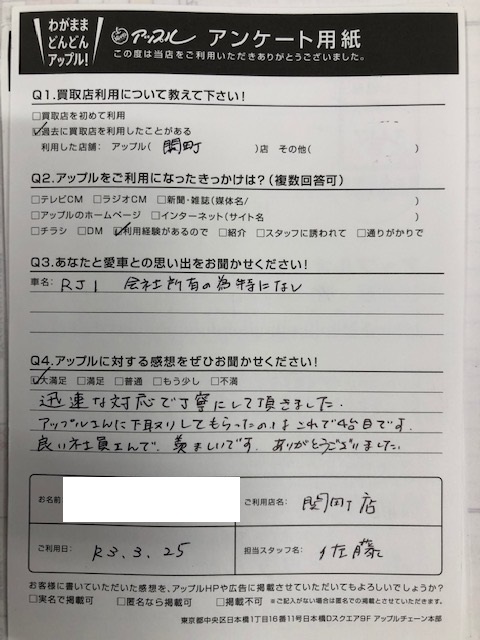 わがまま
どんどん
アップル!
アップル アンケート用紙
この度は当店をご利用いただきありがとうございました。
Q1.買取店利用について教えて下さい!
□買取店を初めて利用
☑過去に買取店を利用したことがある
利用した店舗: アップル( 関町 )店 その他( )
Q2.アップルをご利用になったきっかけは?(複数回答可)
□テレビCM □ラジオCM □新聞・雑誌(媒体名/ )
□アップルのホームページ □インターネット(サイト名 )
□チラシ □DM ☑利用経験があるので □紹介 □スタッフに誘われて □通りがかりで
Q3.あなたと愛車との思い出をお聞かせください!
車名: RJ1 会社所有の為特になし
Q4.アップルに対する感想をぜひお聞かせください!
☑大満足 □満足 □普通 □もう少し □不満
迅速な対応で丁寧にして頂きました.
アップルさんに下取りしてもらったのはこれで4台目です.
良い社員さんで、羨ましいです. ありがとうございました.
お名前 ご利用店名: 関町店
ご利用日: R3.3.25 担当スタッフ名: 佐藤
お客様に書いていただいた感想を、アップルHPや広告に掲載させていただいてもよろしいでしょうか?
□実名で掲載可 □匿名なら掲載可 □掲載不可 ※ご記入がない場合は匿名での掲載とさせていただきます。
東京都中央区日本橋1丁目16番11号日本橋Dスクエア9F アップルチェーン本部